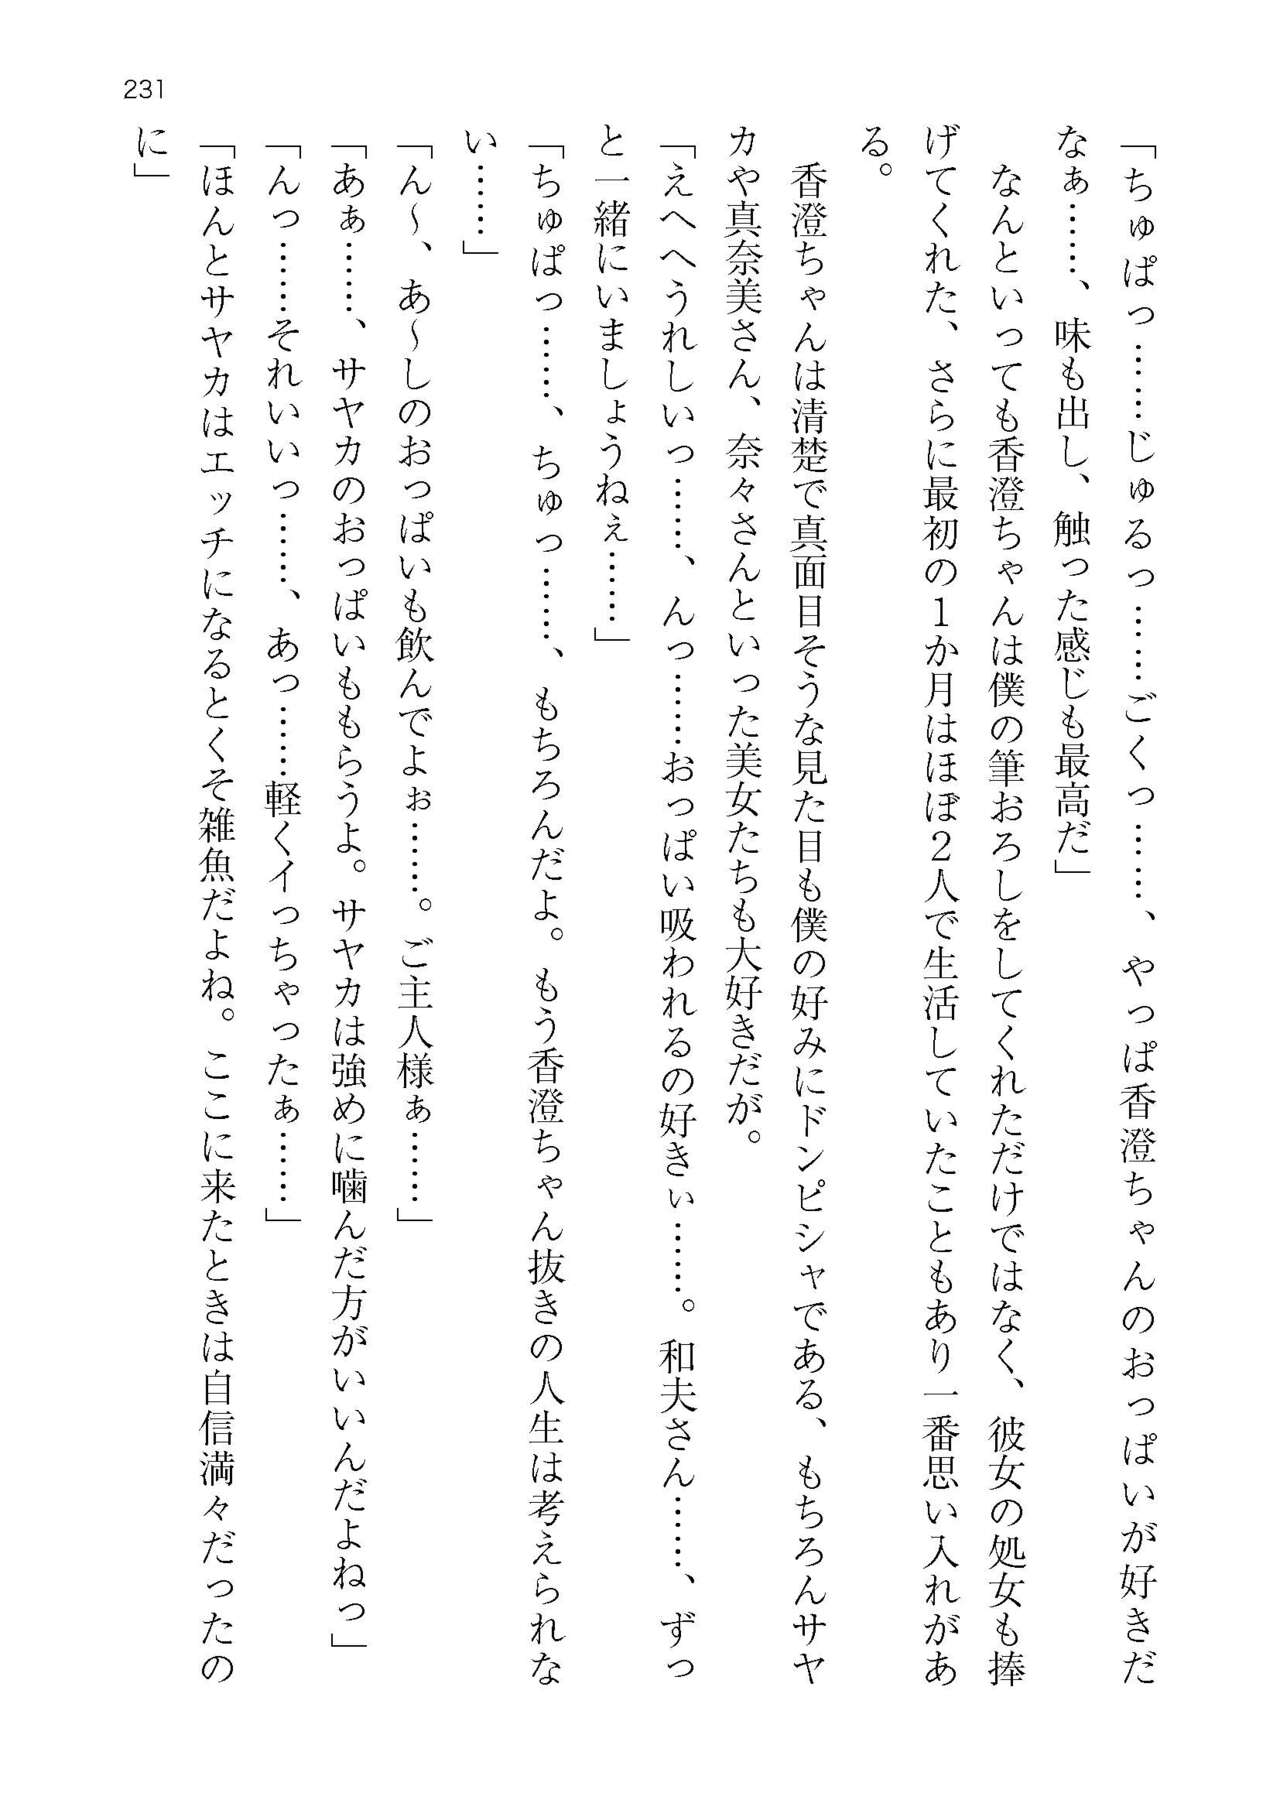 231
「ちゅぱっ……じゅるっ……ごくっ……、やっぱ香澄ちゃんのおっぱいが好きだ
なぁ……、味も出し、触った感じも最高だ」
　なんといっても香澄ちゃんは僕の筆おろしをしてくれただけではなく、彼女の処女も捧
げてくれた、さらに最初の１か月はほぼ２人で生活していたこともあり一番思い入れがあ
る。
　香澄ちゃんは清楚で真面目そうな見た目も僕の好みにドンピシャである、もちろんサヤ
カや真奈美さん、奈々さんといった美女たちも大好きだが。
「えへへうれしいっ……、んっ……おっぱい吸われるの好きぃ……。和夫さん……、ずっ
と一緒にいましょうねぇ……」
「ちゅぱっ……、ちゅっ……、もちろんだよ。もう香澄ちゃん抜きの人生は考えられな
い……」
「ん～、あ～しのおっぱいも飲んでよぉ……。ご主人様ぁ……」
「あぁ……、サヤカのおっぱいももらうよ。サヤカは強めに噛んだ方がいいんだよねっ」
「んっ……それいいっ……、あっ……軽くイっちゃったぁ……」
「ほんとサヤカはエッチになるとくそ雑魚だよね。ここに来たときは自信満々だったの
に」